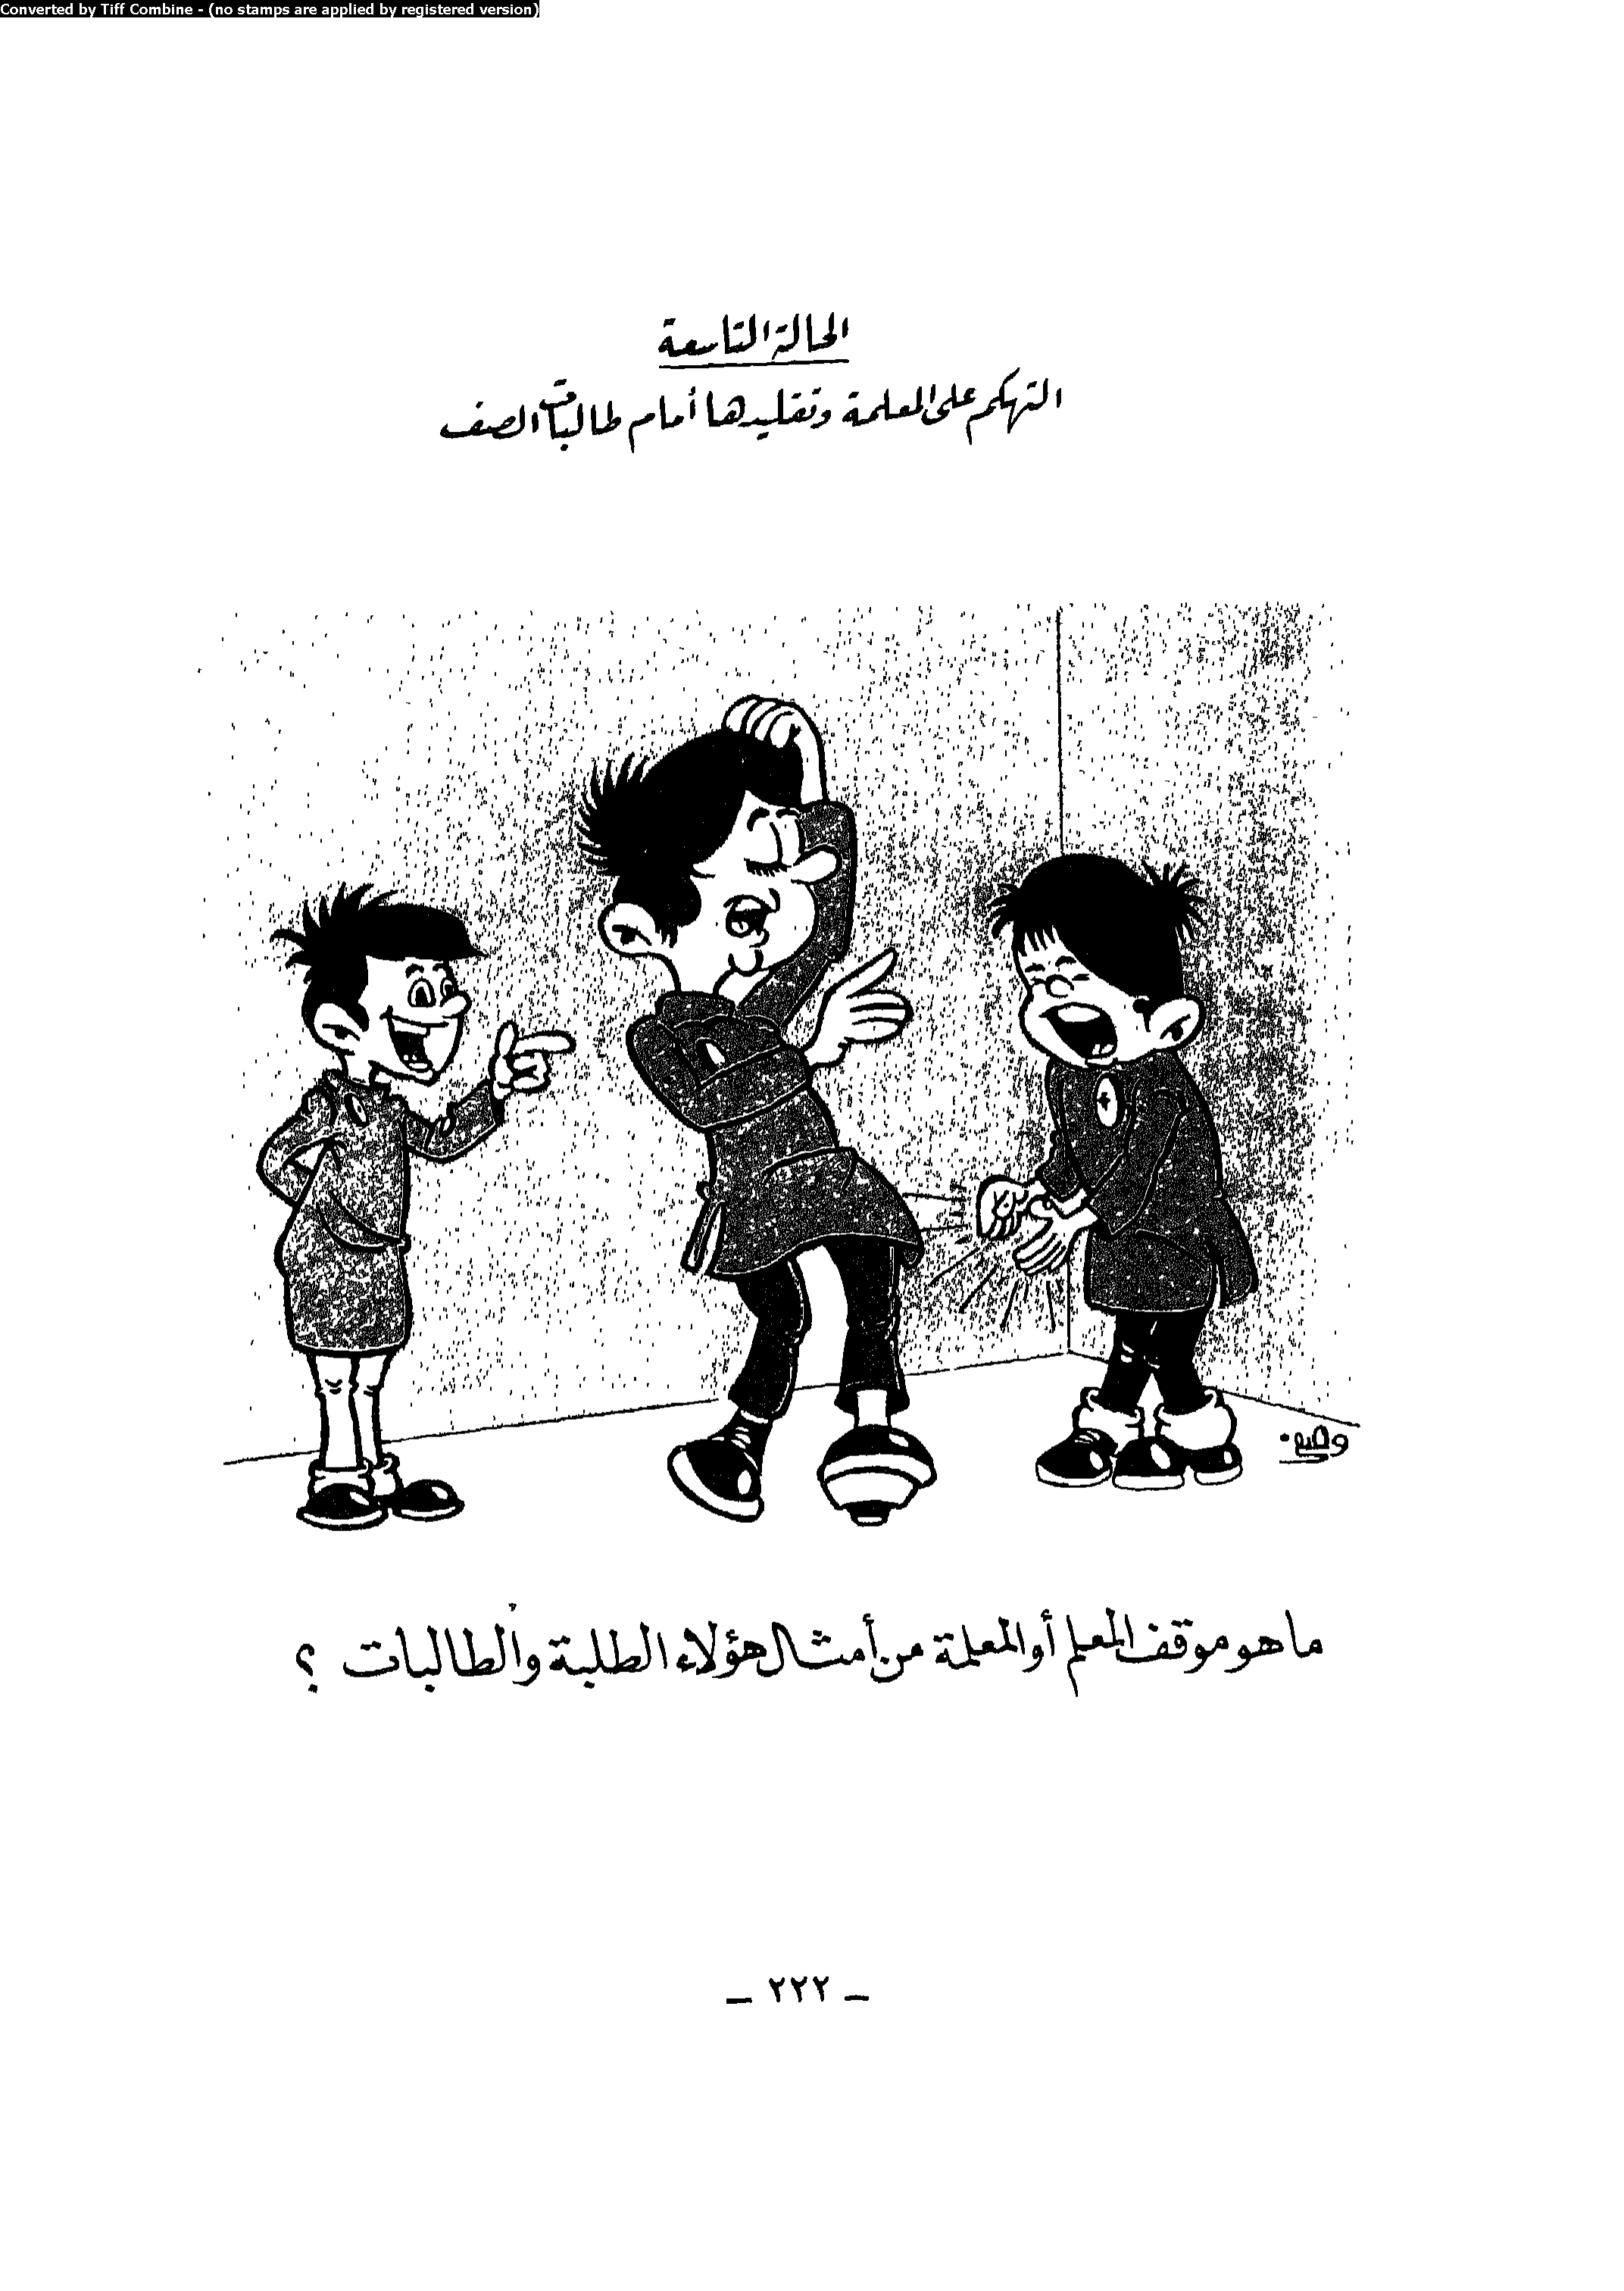 Converted by Tiff Combine - (no stamps are applied by registered version)
الحالة التاسعة
التهكم على المعلمة وتقليدها أمام طالبات الصف
ما هو موقف المعلم أو المعلمة من أمثال هؤلاء الطلبة والطالبات ؟
_ ٢٢٢ _